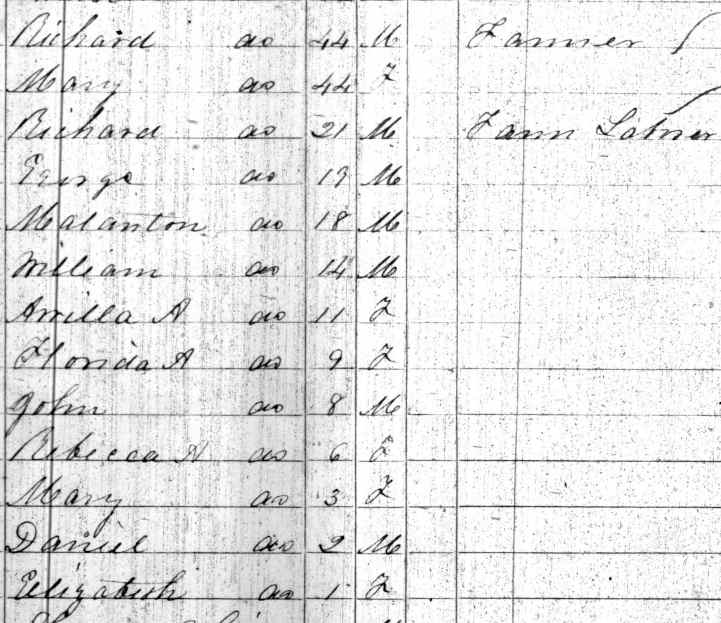 Richard do 44 M Farmer
Mary do 44 F
Richard do 21 M Farm Laborer
George do 19 M
Malanton do 18 M
William do 14 M
Arrilla A do 11 F
Florida A do 9 F
John do 8 M
Rebecca A do 6 F
Mary do 3 F
Daniel do 2 M
Elizabeth do 1 F